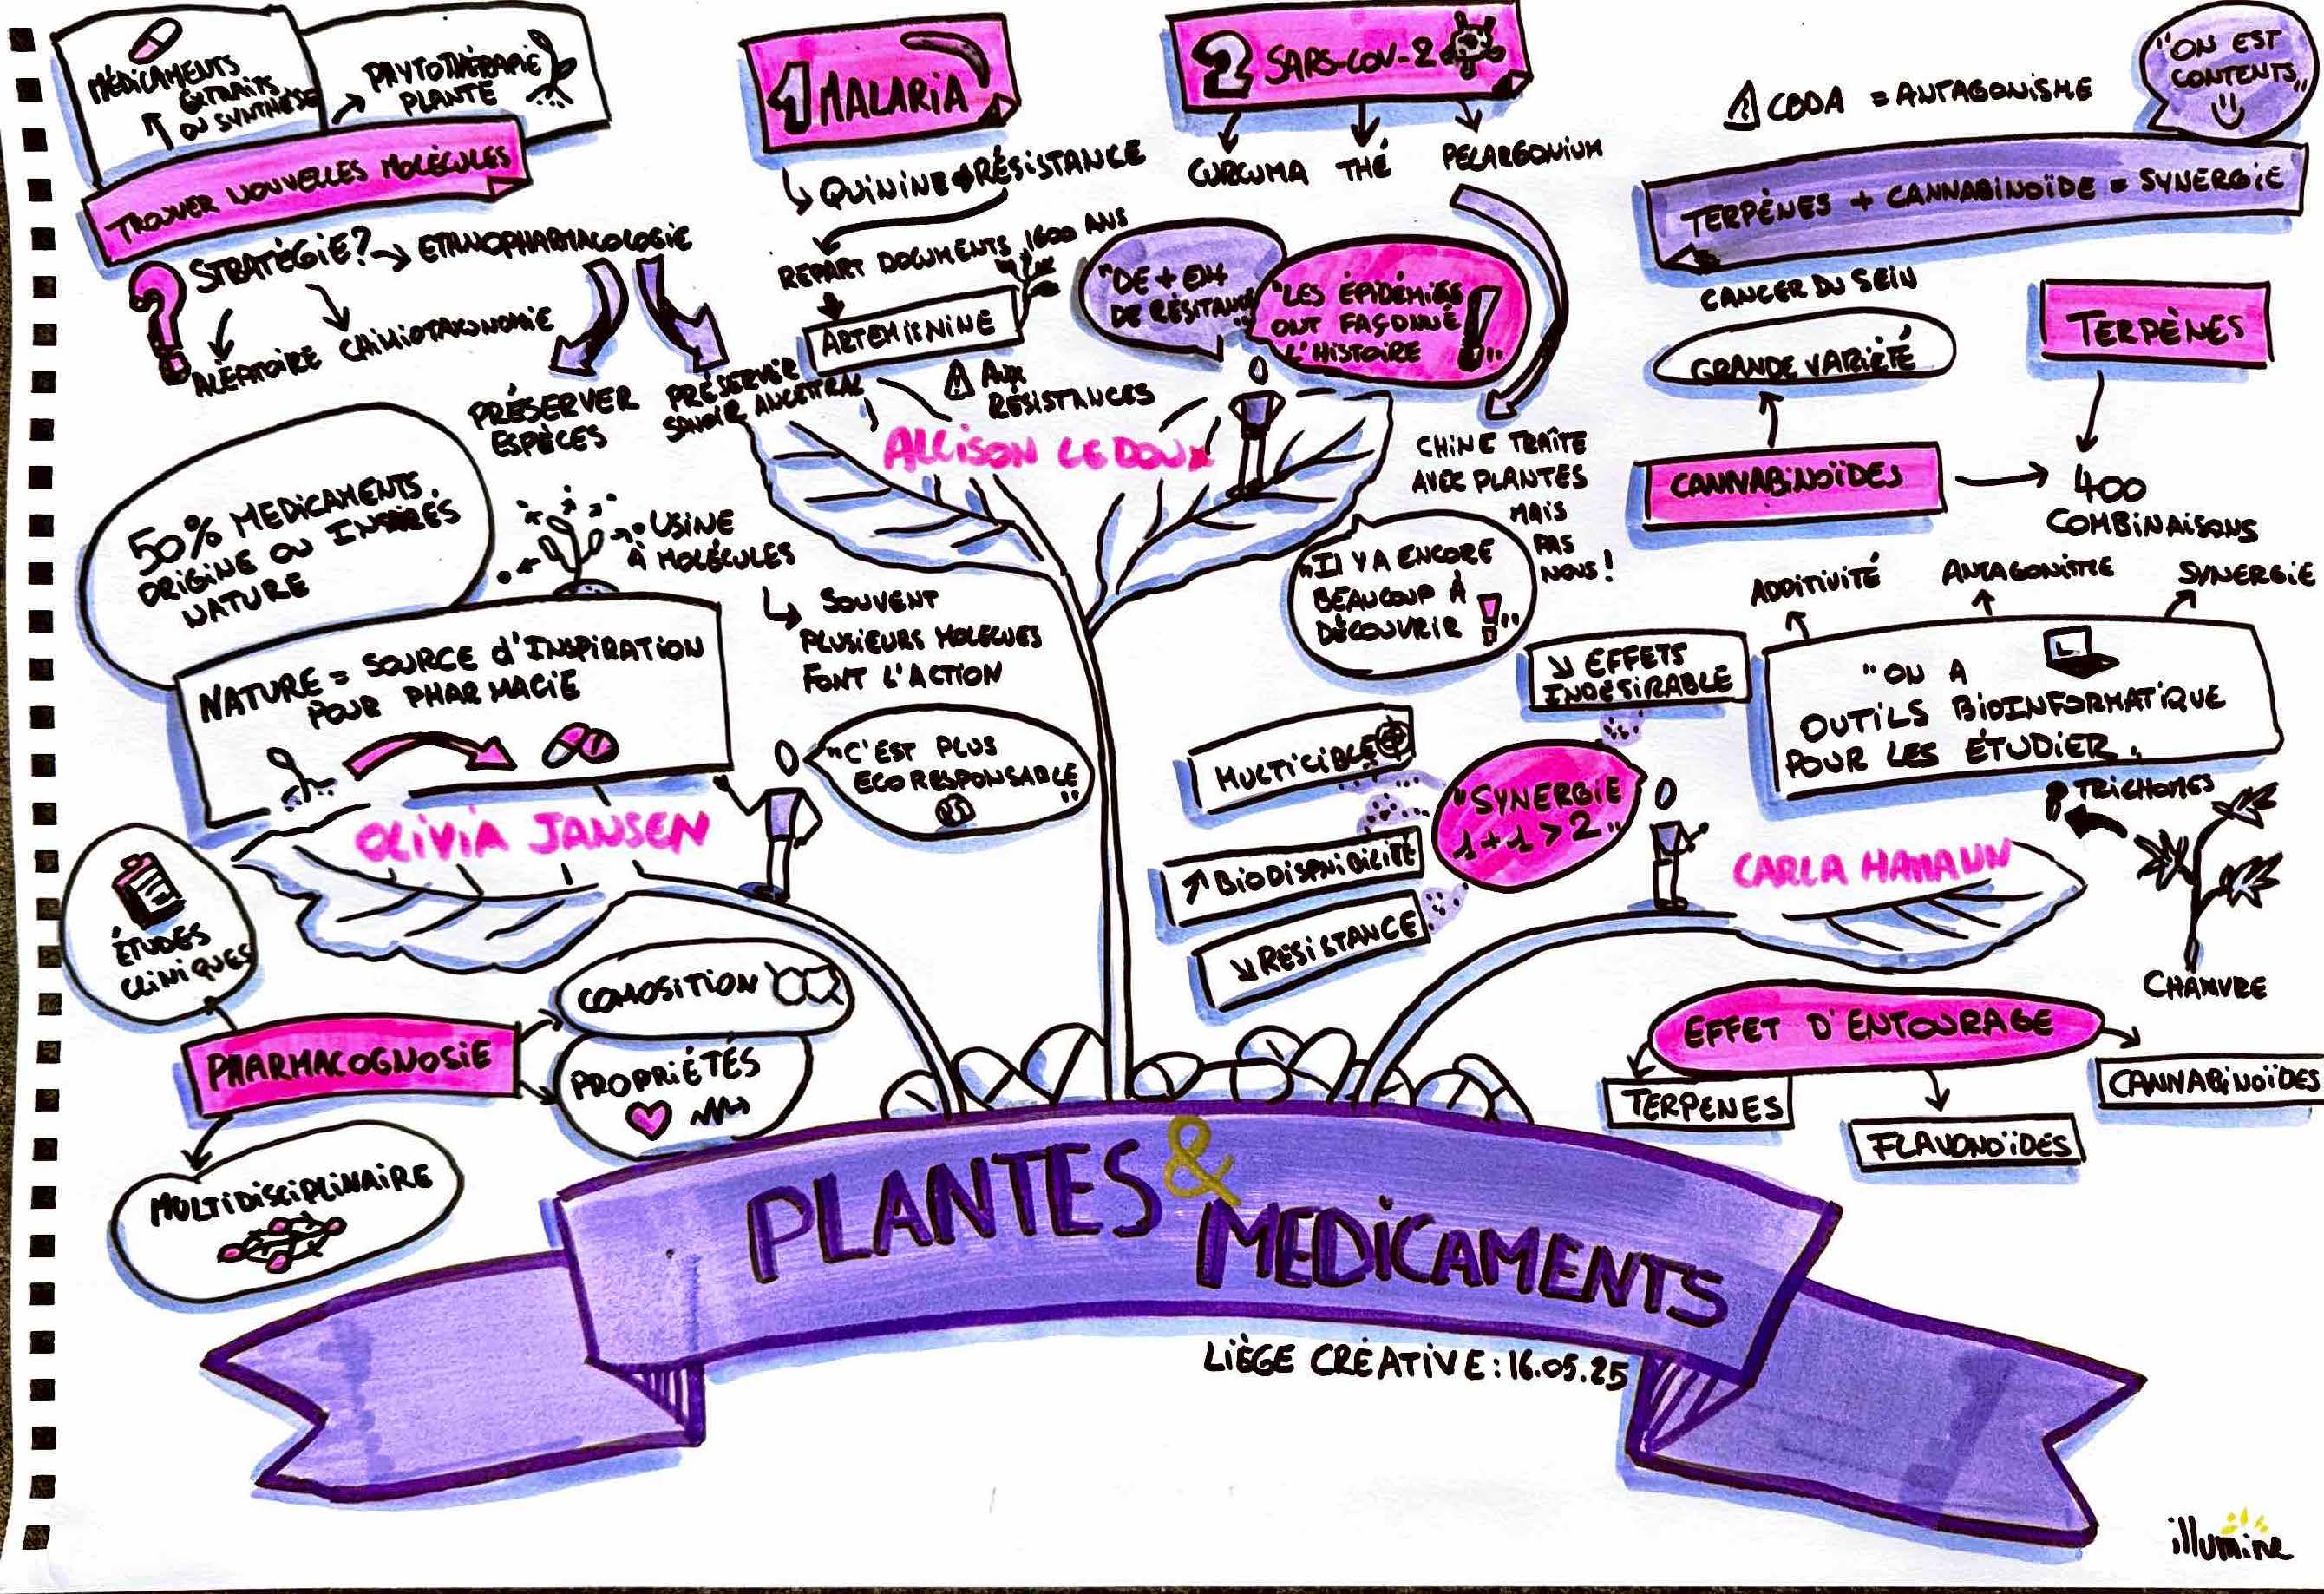 MÉDICAMENTS
EXTRAITS
OU SYNTHÈSE
PHYTOTHÉRAPIE
PLANTE
TROUVER NOUVELLES MOLÉCULES
STRATÉGIE? → ETHNOPHARMACOLOGIE
ALÉATOIRE
CHIMIOTAXONOMIE
PRÉSERVER
ESPÈCES
PRÉSERVER
SAVOIR ANCESTRAL
50% MEDICAMENTS
ORIGINE OU INSPIRÉS
NATURE
USINE
À MOLÉCULES
SOUVENT
PLUSIEURS MOLECUES
FONT L'ACTION
NATURE = SOURCE d'INSPIRATION
POUR PHARMACIE
"C'EST PLUS
ECORESPONSABLE"
OLIVIA JANSEN
ÉTUDES
CLINIQUES
PHARMACOGNOSIE
COMOSITION
PROPRIÉTÉS
MULTIDISCIPLINAIRE
1 MALARIA
QUININE RÉSISTANCE
REPART DOCUMENTS 1600 ANS
ARTEMISNINE
⚠ AUX
RÉSISTANCES
"DE + EN +
DE RÉSITANCE"
"LES ÉPIDÉMIES
ONT FAÇONNÉ
L'HISTOIRE !"
ALLISON LEDOUX
2 SARS-COV-2
CURCUMA THÉ PELARGONIUM
CHINE TRAÎTE
AVEC PLANTES
MAIS
PAS
NOUS!
"Il Y A ENCORE
BEAUCOUP À
DÉCOUVRIR !"
"ON EST
CONTENTS"
⚠ CBDA = ANTAGONISME
TERPÈNES + CANNABINOÏDE = SYNERGIE
CANCER DU SEIN
GRANDE VARIÉTÉ
TERPÈNES
CANNABINOÏDES
400
COMBINAISONS
ADDITIVITÉ
ANTAGONISME
SYNERGIE
"ON A
OUTILS BIOINFORMATIQUE
POUR LES ÉTUDIER"
↘ EFFETS
INDÉSIRABLE
MULTICIBLE
↗ BIODISPNIBILITÉ
↘ RÉSISTANCE
"SYNERGIE
1+1>2"
CARLA HAMANN
TRICHOMES
CHANVRE
EFFET D'ENTOURAGE
TERPENES
FLAVONOÏDES
CANNABINOÏDES
PLANTES & MEDICAMENTS
LIÈGE CRÉATIVE : 16.05.25
illumine